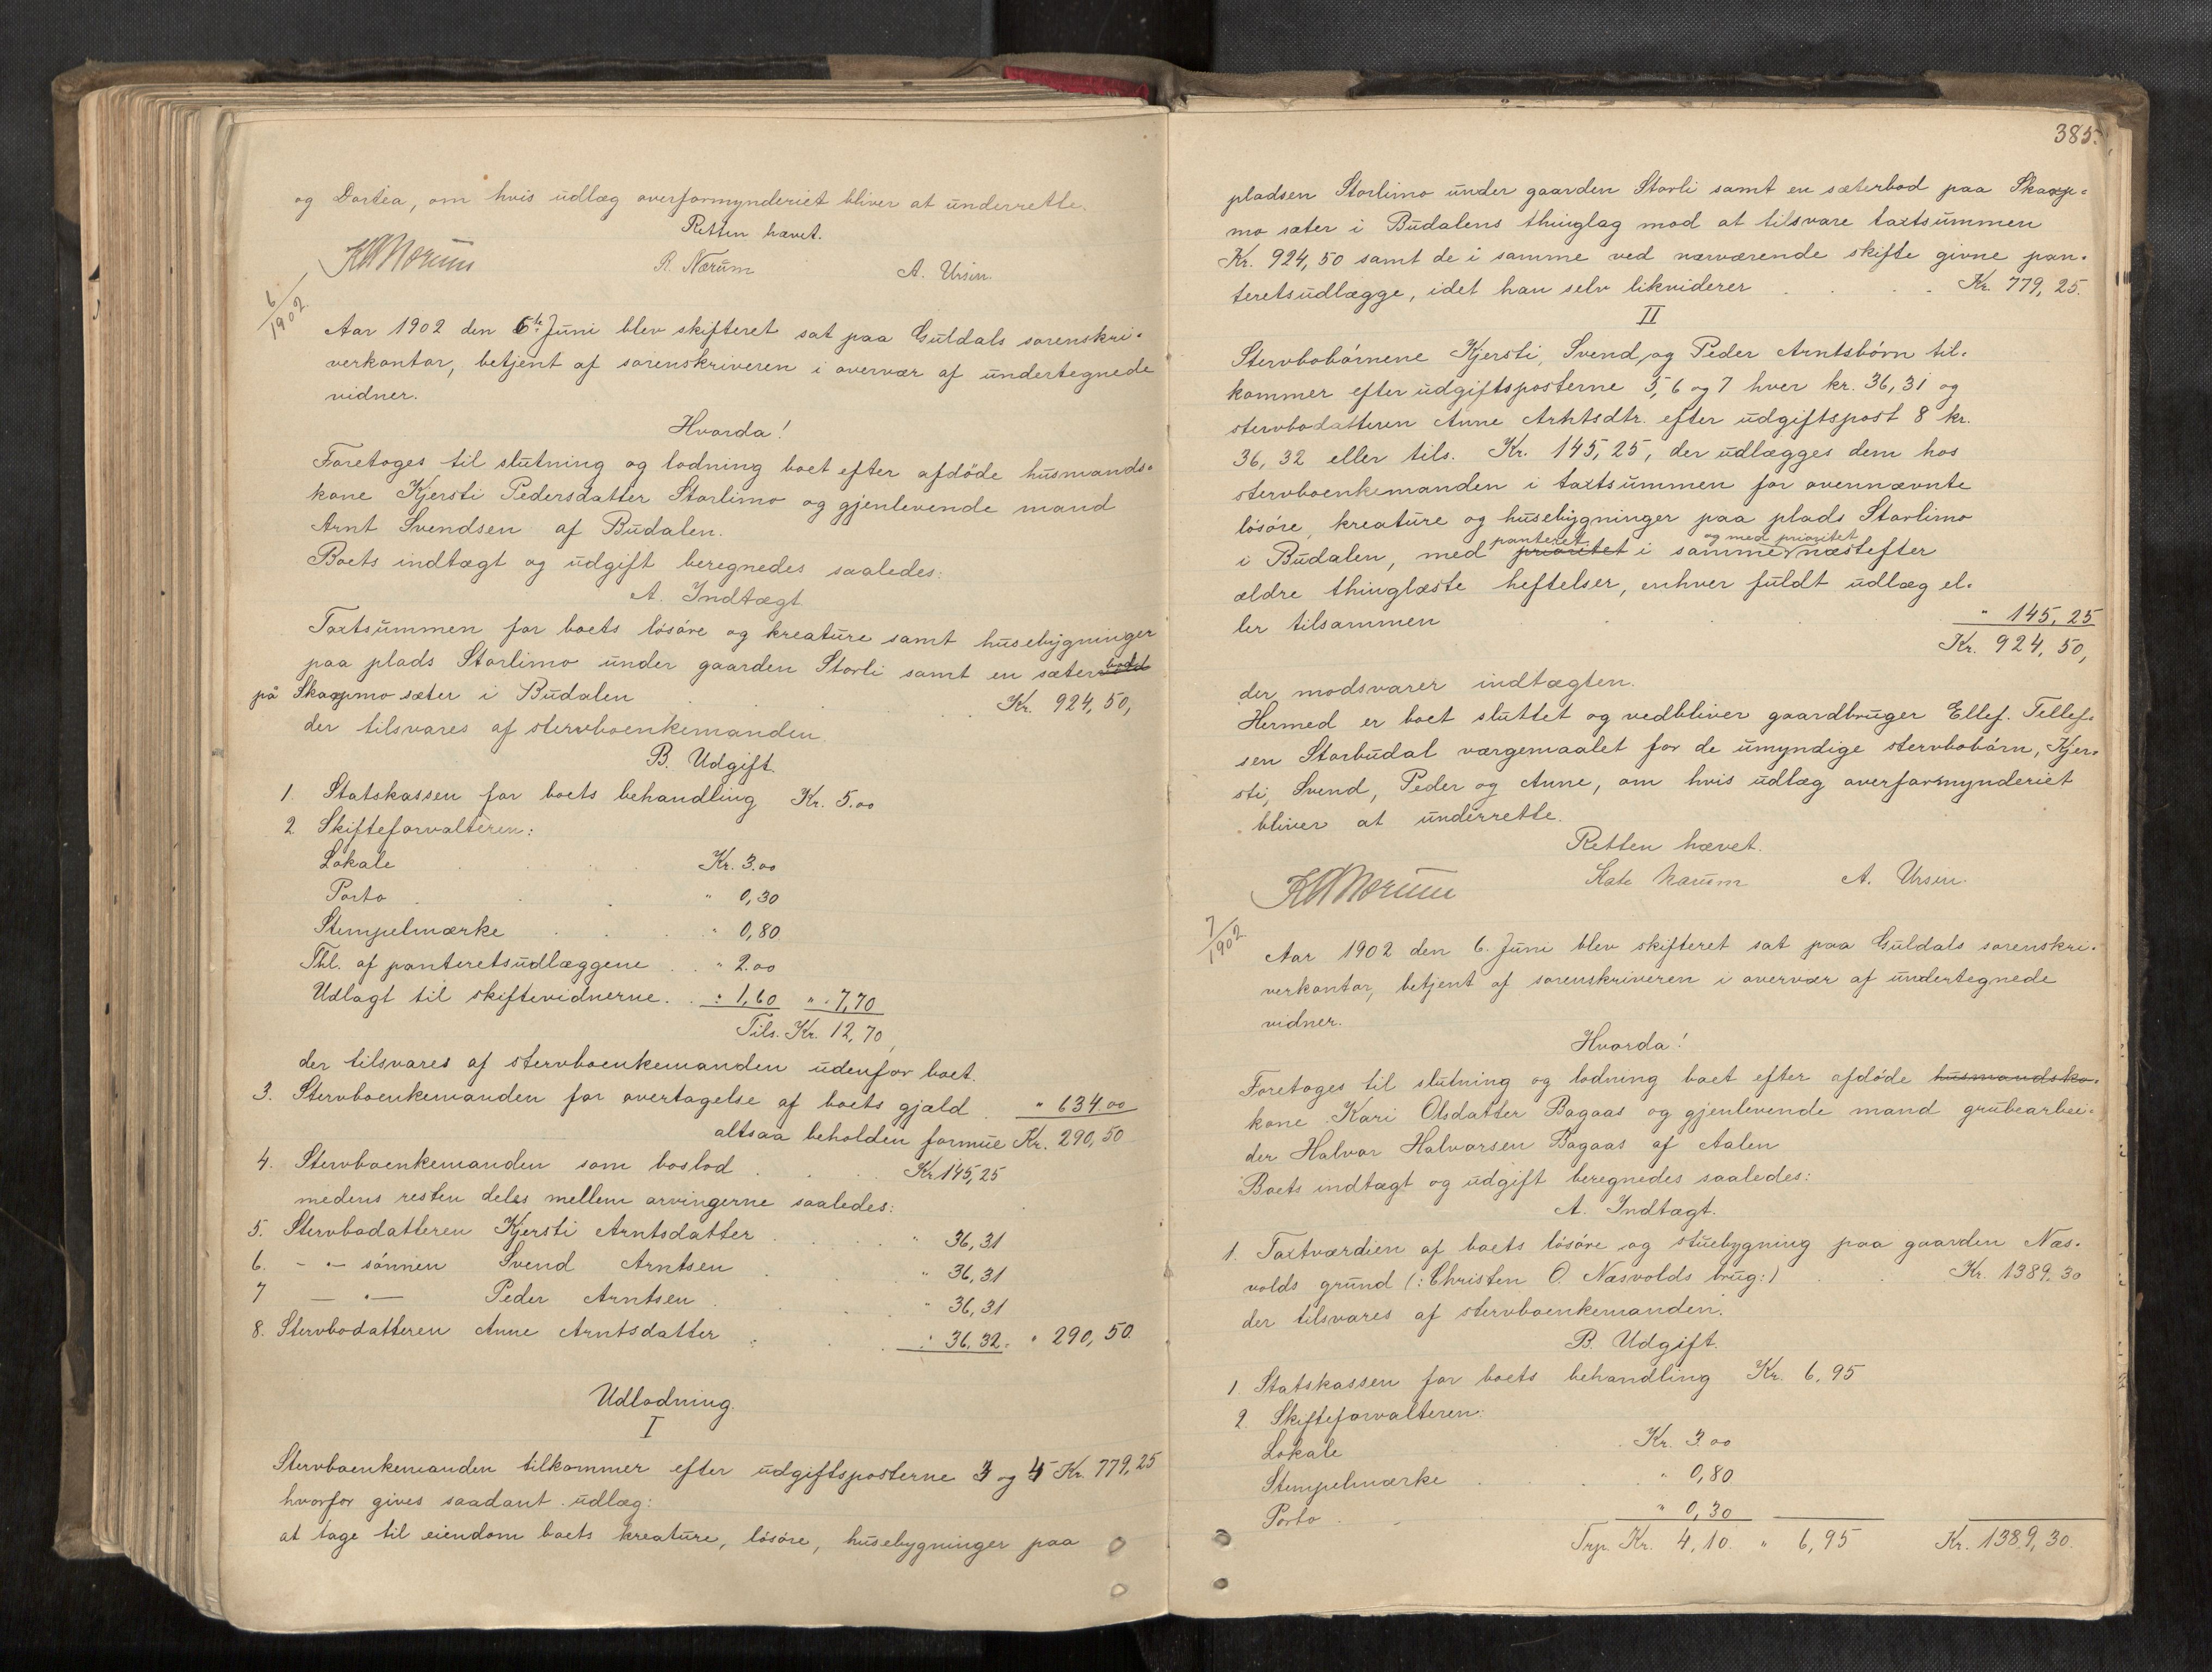 og Dortea, om hvis udlæg overformynderiet bliver at underrette.
Retten hævet.
R. Nærum
A. Ursin.
6/1902.
Aar 1902 den 6te Juni blev skifteret sat paa Guldals sorenskri-
verkontor, betjent af sorenskriveren i overvær af undertegnede
vidner.
Hvorda!
Foretoges til slutning og lodning boet efter afdöde husmands-
kone Kjersti Pedersdatter Storlimo og gjenlevende mand
Arnt Svendsen af Budalen.
Boets indtægt og udgift beregnedes saaledes:
A. Indtægt
Taxtsummen for boets lösöre og kreature samt husebygninger
paa plads Storlimo under gaarden Storli samt en sæterbod
på Skarpmo sæter i Budalen Kr. 924,50,
der tilsvares af stervboenkemanden.
B. Udgift.
1. Statskassen for boets behandling Kr. 5.00
2. Skifteforvalteren:
Lokale Kr. 3.00
Porto " 0,30
Stempelmærke " 0,80
Thl. af panteretsudlæggene " 2.00
Udlagt til skiftevidnerne " 1,60 " 7,70
Tils. Kr. 12,70,
der tilsvares af stervboenkemanden udenfor boet.
3. Stervboenkemanden for overtagelse af boets gjæld " 634.00
altsaa beholden formue Kr. 290,50
4. Stervboenkemanden som boslod Kr. 145,25
medens resten deles mellem arvingerne saaledes:
5. Stervbodatteren Kjersti Arntsdatter " 36,31
6. - " - sönnen Svend Arntsen " 36,31
7 - " - Peder Arntsen " 36,31
8. Stervbodatteren Anne Arntsdatter " 36,32. " 290,50.
Udlodning.
I
Stervboenkemanden tilkommer efter udgiftsposterne 3 og 4 Kr. 779,25
hvorfor gives saadant udlæg:
at tage til eiendom boets kreature, lösöre, husebygninger paa
385.
pladsen Storlimo under gaarden Storli samt en sæterbod paa Skarp-
mo sæter i Budalens thinglag mod at tilsvare taxtsummen
Kr. 924,50 samt de i samme ved nærværende skifte givne pan-
teretsudlægge, idet han selv likviderer Kr. 779,25.
II
Stervbobörnene Kjersti, Svend og Peder Arntsbörn til-
kommer efter udgiftsposterne 5, 6 og 7 hver kr. 36,31 og
stervbodatteren Anne Arntsdtr. efter udgiftspost 8 kr.
36,32 eller tils. Kr. 145,25, der udlægges dem hos
stervboenkemanden i taxtsummen for ovennævnte
lösöre, kreature og husebygninger paa plads Storlimo
panteret og med prioritet
i Budalen, med prioritet i samme næstefter
ældre thinglæste heftelser, enhver fuldt udlæg el-
ler tilsammen " 145,25
Kr. 924,50,
der modsvarer indtægten.
Hermed er boet sluttet og vedbliver gaardbruger Ellef. Tellef-
sen Storbudal værgemaalet for de umyndige stervbobörn, Kjer-
sti, Svend, Peder og Anne, om hvis udlæg overformynderiet
bliver at underrette.
Retten hævet.
Kate Nærum
A. Ursin.
7/1902
Aar 1902 den 6. Juni blev skifteret sat paa Guldals sorenskri-
verkontor, betjent af sorenskriveren i overvær af undertegnede
vidner.
Hvorda!
Foretoges til slutning og lodning boet efter afdöde husmandsko-
kone Kari Olsdatter Bagaas og gjenlevende mand grubearbei-
der Halvor Halvorsen Bagaas af Aalen
Boets indtægt og udgift beregnedes saaledes:
A. Indtægt.
1. Taxtværdien af boets lösöre og stuebygning paa gaarden Næs-
volds grund (: Christen O. Næsvolds brug:) Kr. 1389.30
der tilsvares af stervboenkemanden.
B. Udgift.
1. Statskassen for boets behandling Kr. 6,95
2. Skifteforvalteren:
Lokale Kr. 3.00
Stempelmærke " 0,80
Porto " 0,30
Trp. Kr. 4,10. " 6,95 Kr. 1389,30.